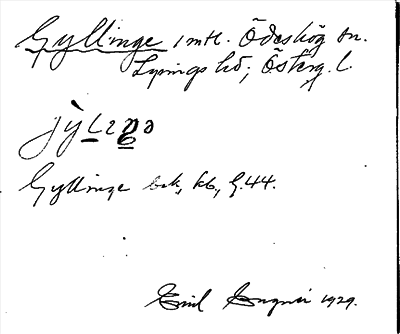 Gyllinge 1 mtl. Ödeshög sn.
Lysings hd; Österg. l.
Gyllinge bsk, kb, G.44.
Emil 1929.